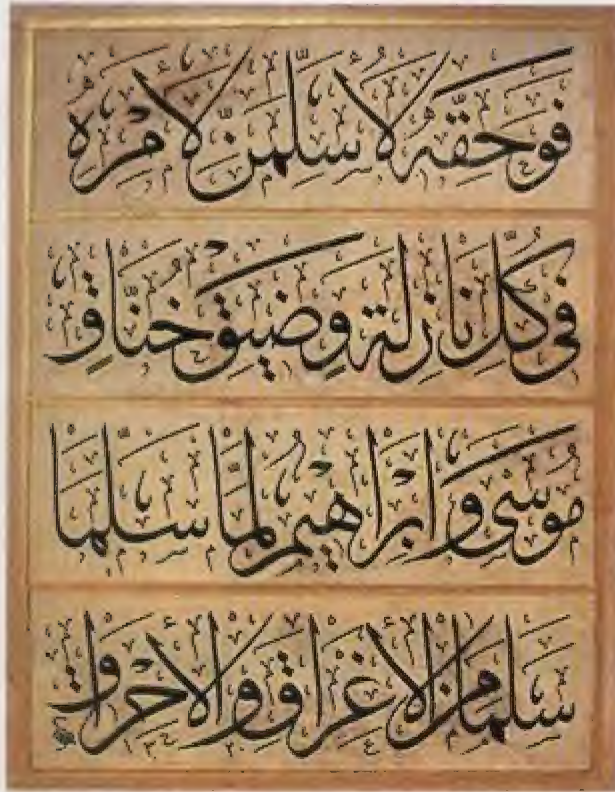 فَوَحَقِّهِ لَأُسَلِّمَنَّ لِأَمْرِهِ
فِي كُلِّ نَازِلَةٍ وَضِيقِ خُنَّاقِ
مُوسَى وَإِبْرَاهِيمُ لَمَّا سَلَّمَا
سَلِمَا مِنَ الْإِغْرَاقِ وَالْإِحْرَاقِ